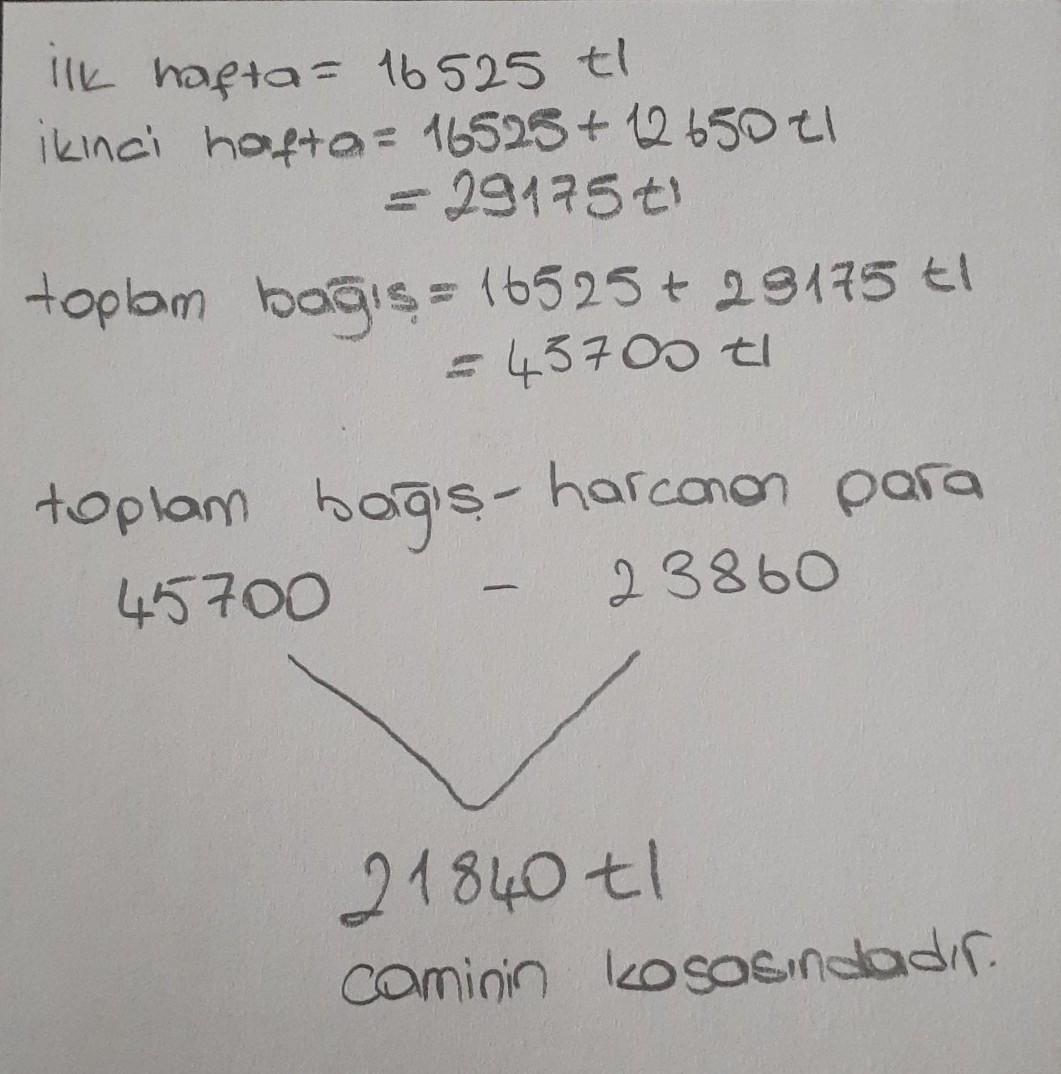 ilk hafta = 16525 tl
ikinci hafta = 16525 + 12650 tl
= 29175 tl
toplam bağış = 16525 + 29175 tl
= 45700 tl
toplam bağış - harcanan para
45700 - 23860
21840 tl
caminin kasasındadır.